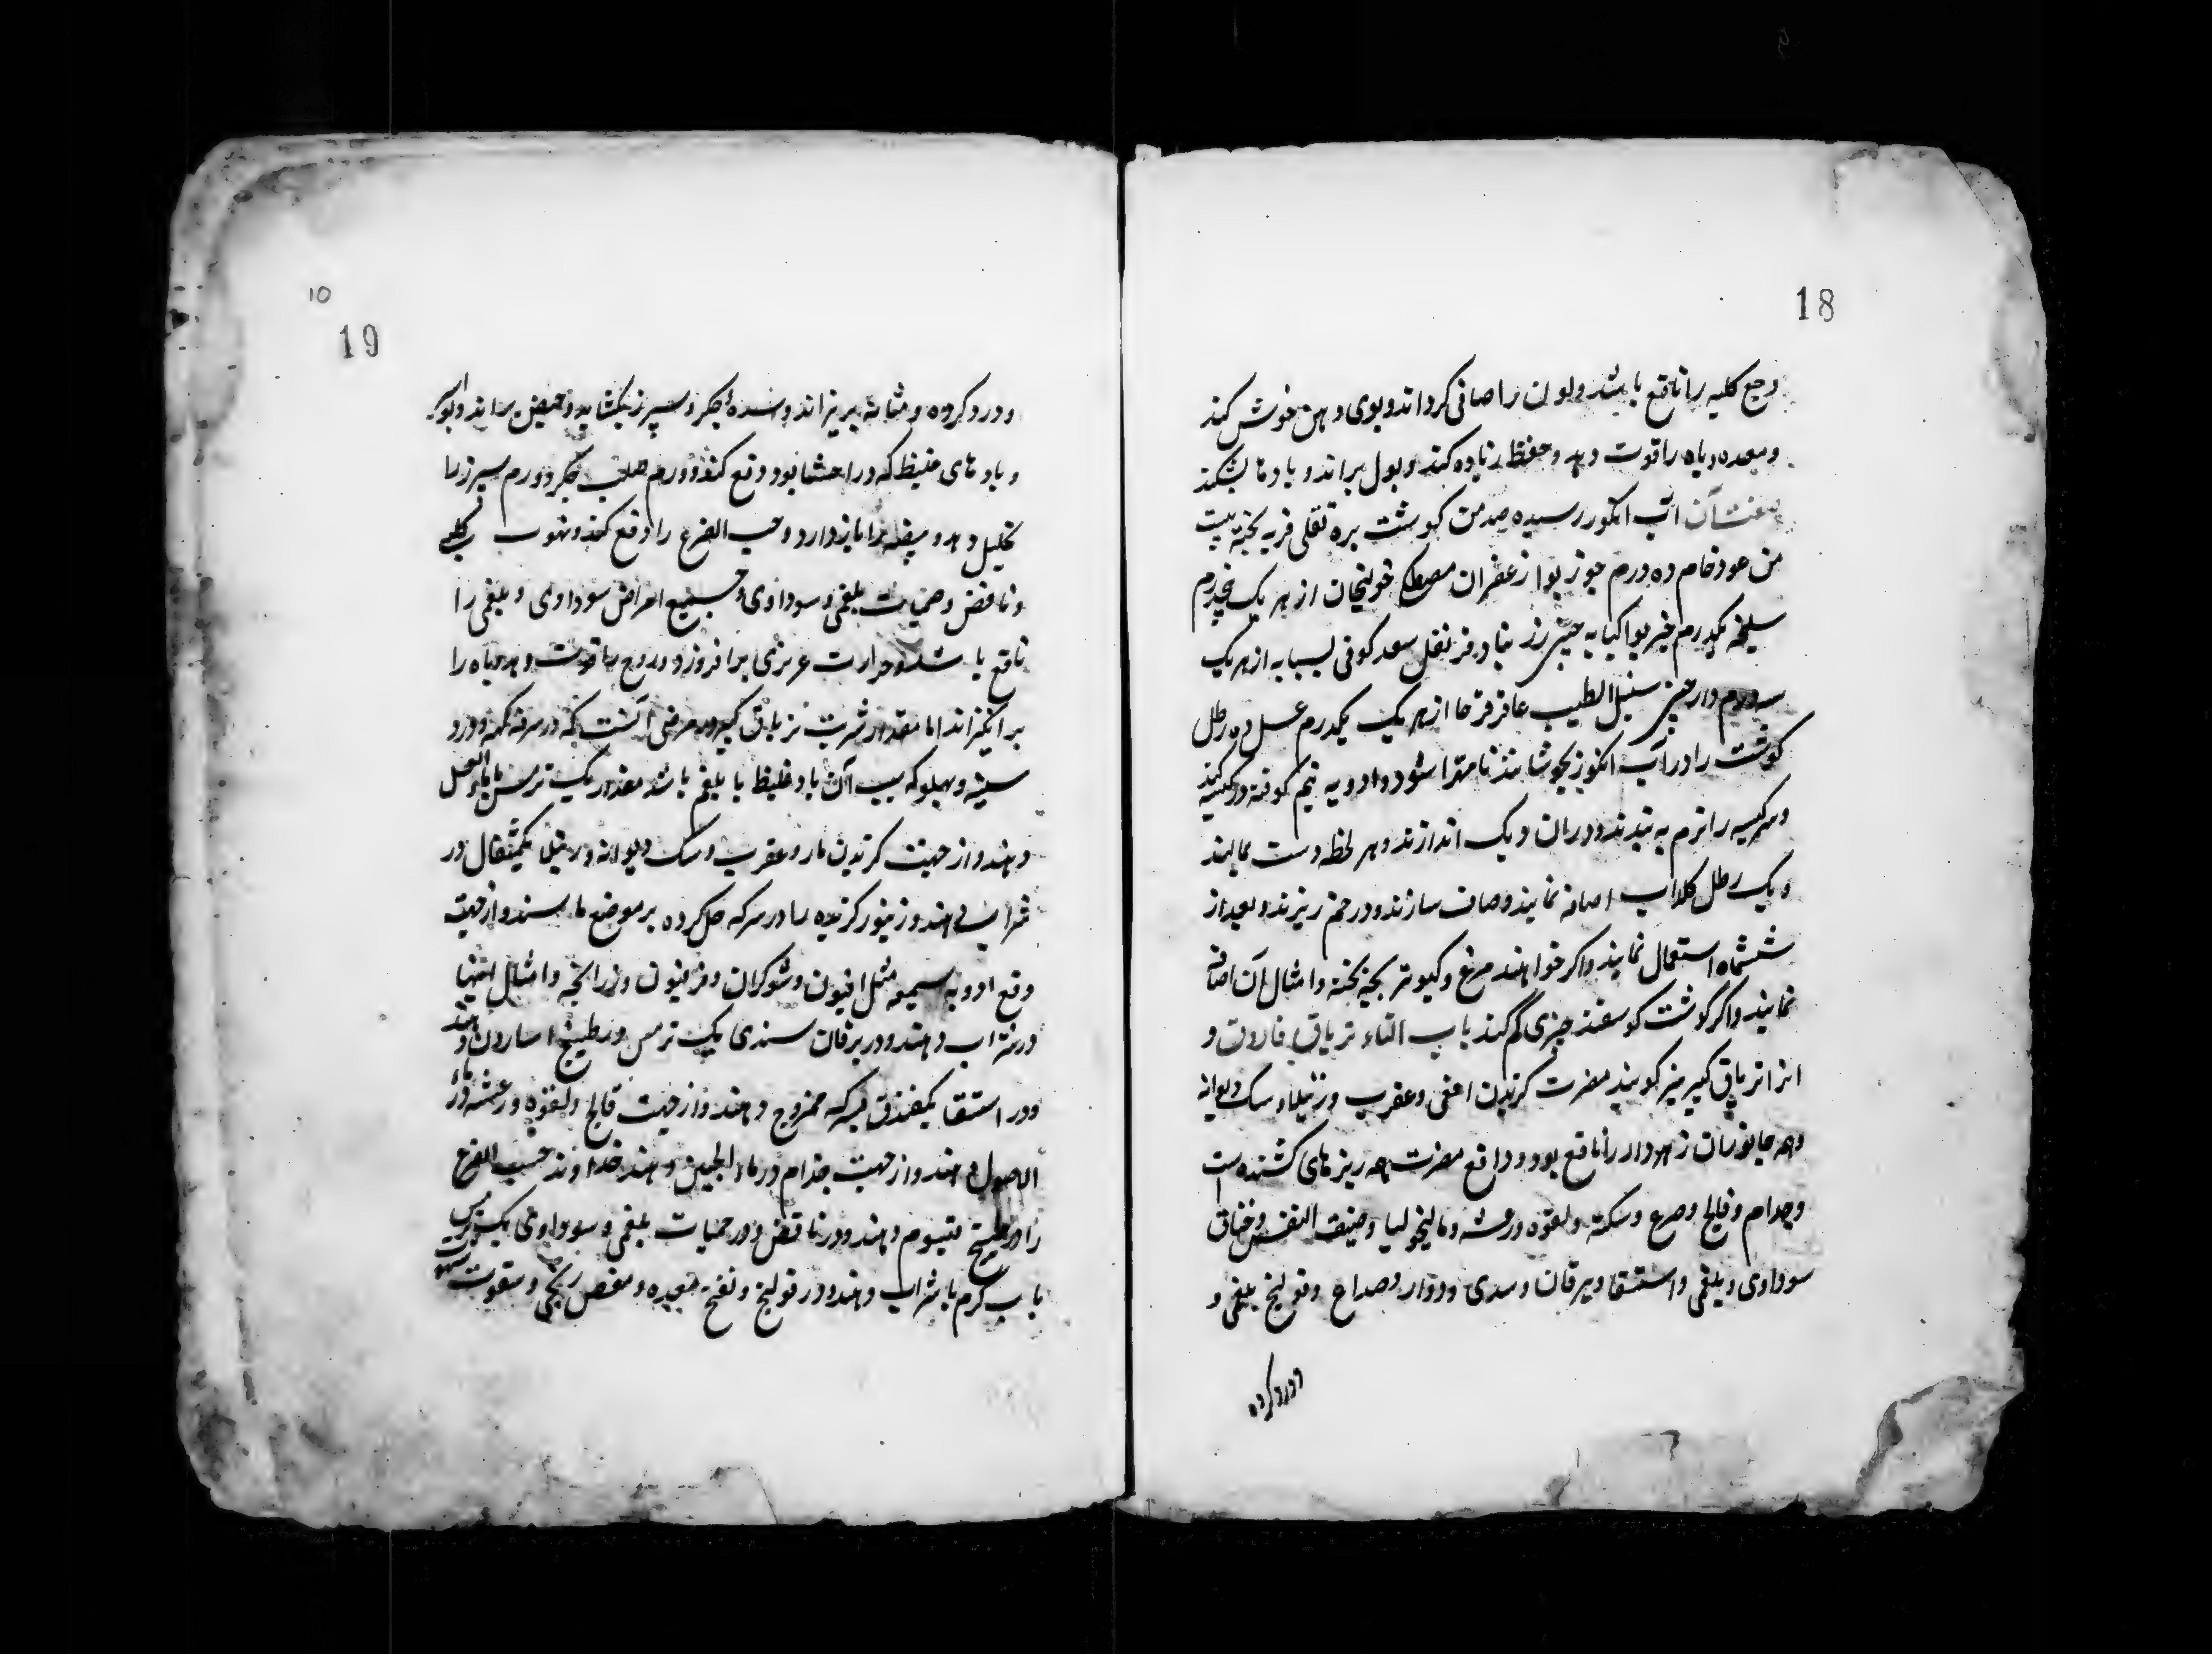 18
وجع کلیه را نافع باشد ولون را صافی کرداند وبوی دهن خوش کند
ومعده وباه را قوت دهد وحفظ زیاده کند وبول براند وبادها بشکند
صفت آن آب انکور رسیده صد من کوشت بره ثقلی فربه پخته بیست
من عود خام ده درم جوز بوا زعفران مصطکی خولنجان از هر یک پنجدرم
سلیخه یکدرم خیر بوا کبابه چینی زرنباد قرنفل سعد کوفی بسباسه از هر یک
سه درم دارچینی سنبل الطیب عاقرقرحا از هر یک یکدرم عسل ده رطل
کوشت را در آب انکور بجوشانند تا مهرا شود وادویه نیم کوفته در کیسه کنند
وسر کیسه را نرم به بندند ودران دیک اندازند وهر لحظه دست بمالند
ویک رطل کلاب اضافه نمایند وصاف سازند ودر خم ریزند وبعد از
ششماه استعمال نمایند واکر خواهند مرغ وکبوتر بچه پخته وامثال آن اضافه
نمایند واکر کوشت کوسفند چیزی کم کنند باب التاء تریاق فاروق و
انرا تریاق کبیر نیز کویند مضرت کزیدن افعی وعقرب ورتیلا وسک دیوانه
وهمه جانوران زهردار را نافع بود ودافع مضرت همه زهرهای کشنده است
وجذام وفالج وصرع وسکته ولقوه ورعشه ومالیخولیا وضیق النفس وخناق
سوداوی وبلغمی واستسقا ویرقان وسدی ودوار وصداع وقولنج بلغمی و
ودرد کرده
10
19
ودرد کرده ومثانه بریزاند وسده جکر وسپرز بکشاید وحیض براند وبواسیر
وبادهای غلیظ که در احشا بود دفع کند وورم صلب جکر وورم سپرز را
تحلیل دهد وهیضه را بازدارد وحب القرع را دفع کند وشهوت کلبی
ونافض وحمیات بلغمی وسوداوی وجمیع امراض سوداوی وبلغمی را
نافع باشد وحرارت غریزی برافروزد وروح را قوت دهد وباه را
برانکیزاند اما مقدار شربت تریاق کبیر در هر مرضی آنست که در سرفه کهنه ودرد
سینه وپهلو که سبب آن باد غلیظ یا بلغم باشد مقدار یک ترمس با ماء العسل
دهند واز جهت کزیدن مار وعقرب وسک دیوانه ورتیلا یکمثقال در
شراب دهند وزنبور کزیده را در سرکه حل کرده بر موضع مالند واز جهت
دفع ادویه سمیه مثل افیون وشوکران وفرفیون وذراریح وامثال اینها
در شراب دهند ودر یرقان سدی یک ترمس در طبیخ اسارون دهند
ودر استسقا یکفندق بسرکه ممزوج دهند واز جهت فالج ولقوه ورعشه در ماء
الاصول دهند واز جهت جذام در ماء الجبن دهند خداوند حب القرع
را در طبیخ قیسوم دهند ودر نافض ودر حمیات بلغمی وسوداوی یک ترمس
باب کرم یا شراب دهند ودر قولنج ونفخ معده ومغص ریحی وسقوط شهوت